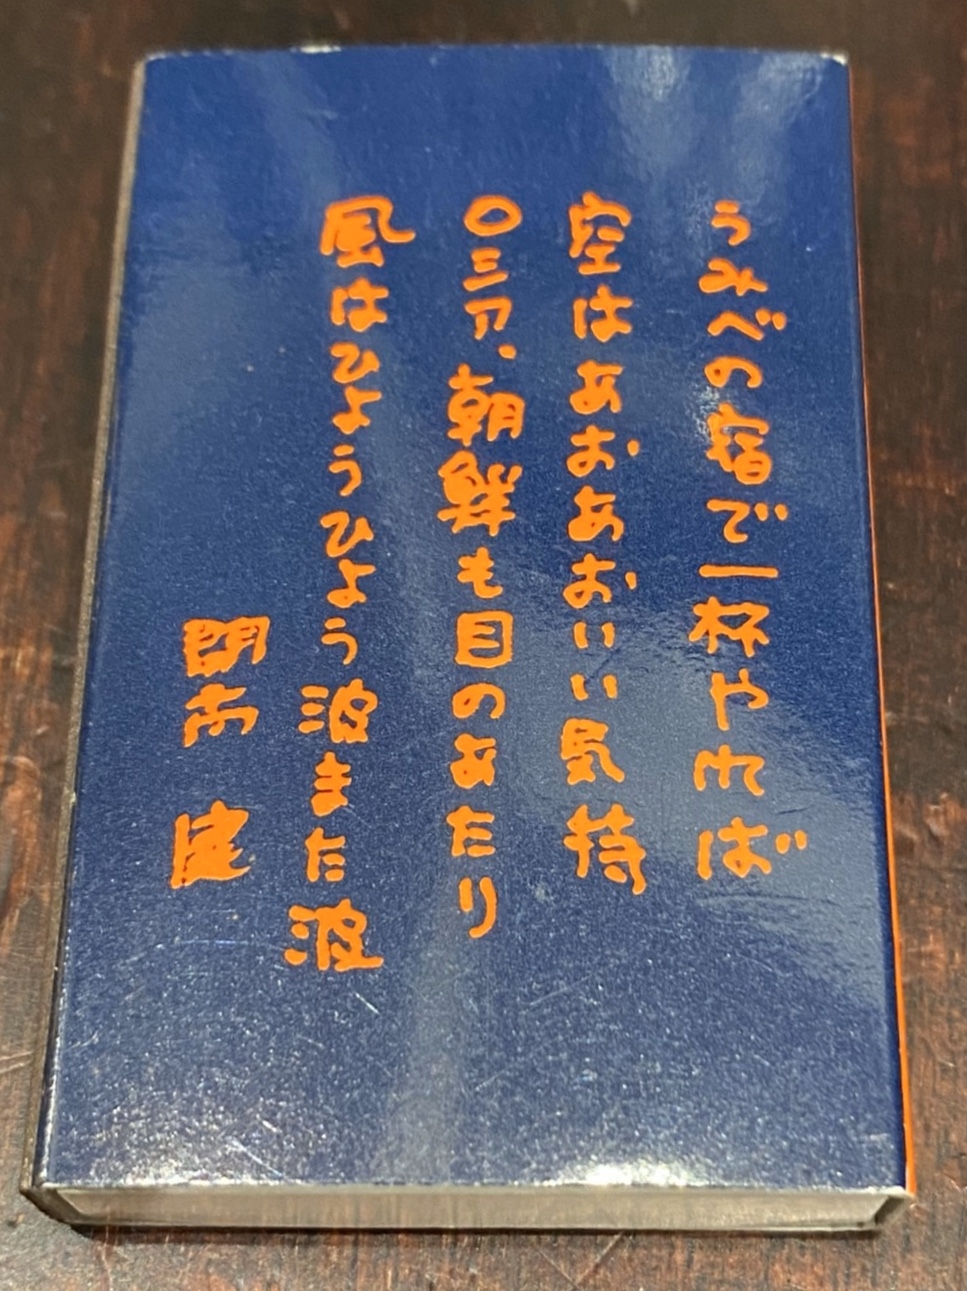 うみべの宿で一杯やれば
空はあおあおいい気持
ロシア、朝鮮も目のあたり
風はひようひよう波また波
開高 健